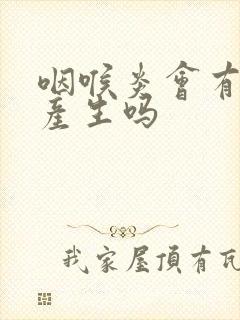 咽喉炎會有
産生吗
我家屋頂有瓦